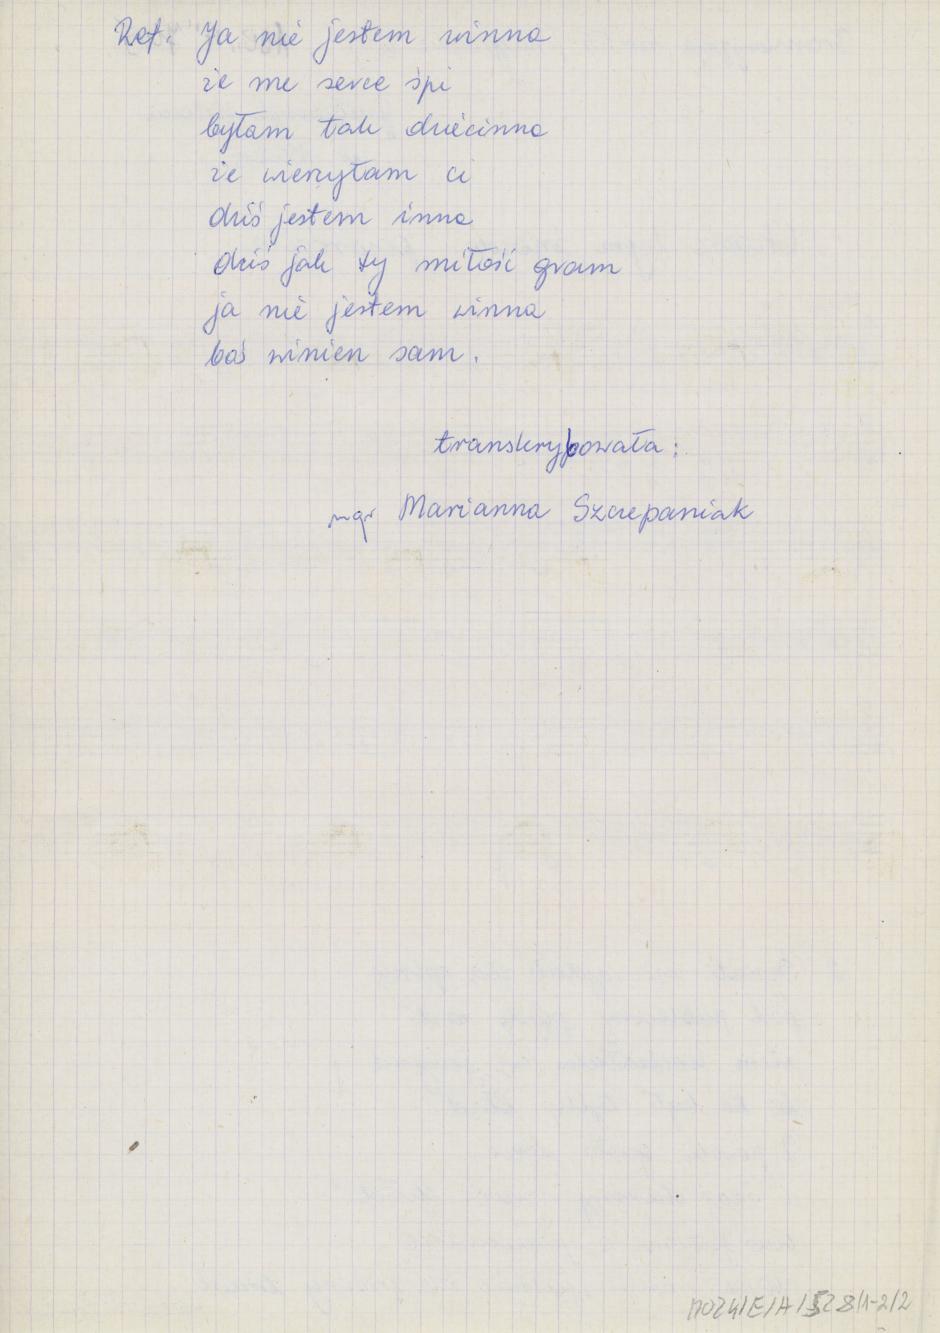 Ref. Ja nie jestem winna
że me serce śpi
byłam tak dziecinna
że wierzyłam ci
dziś jestem inna
dziś jak ty miłość gram
ja nie jestem winna
boś winien sam.
transkrybowała:
mgr Marianna Szczepaniak
MOZK/E/A/528/1-2/2